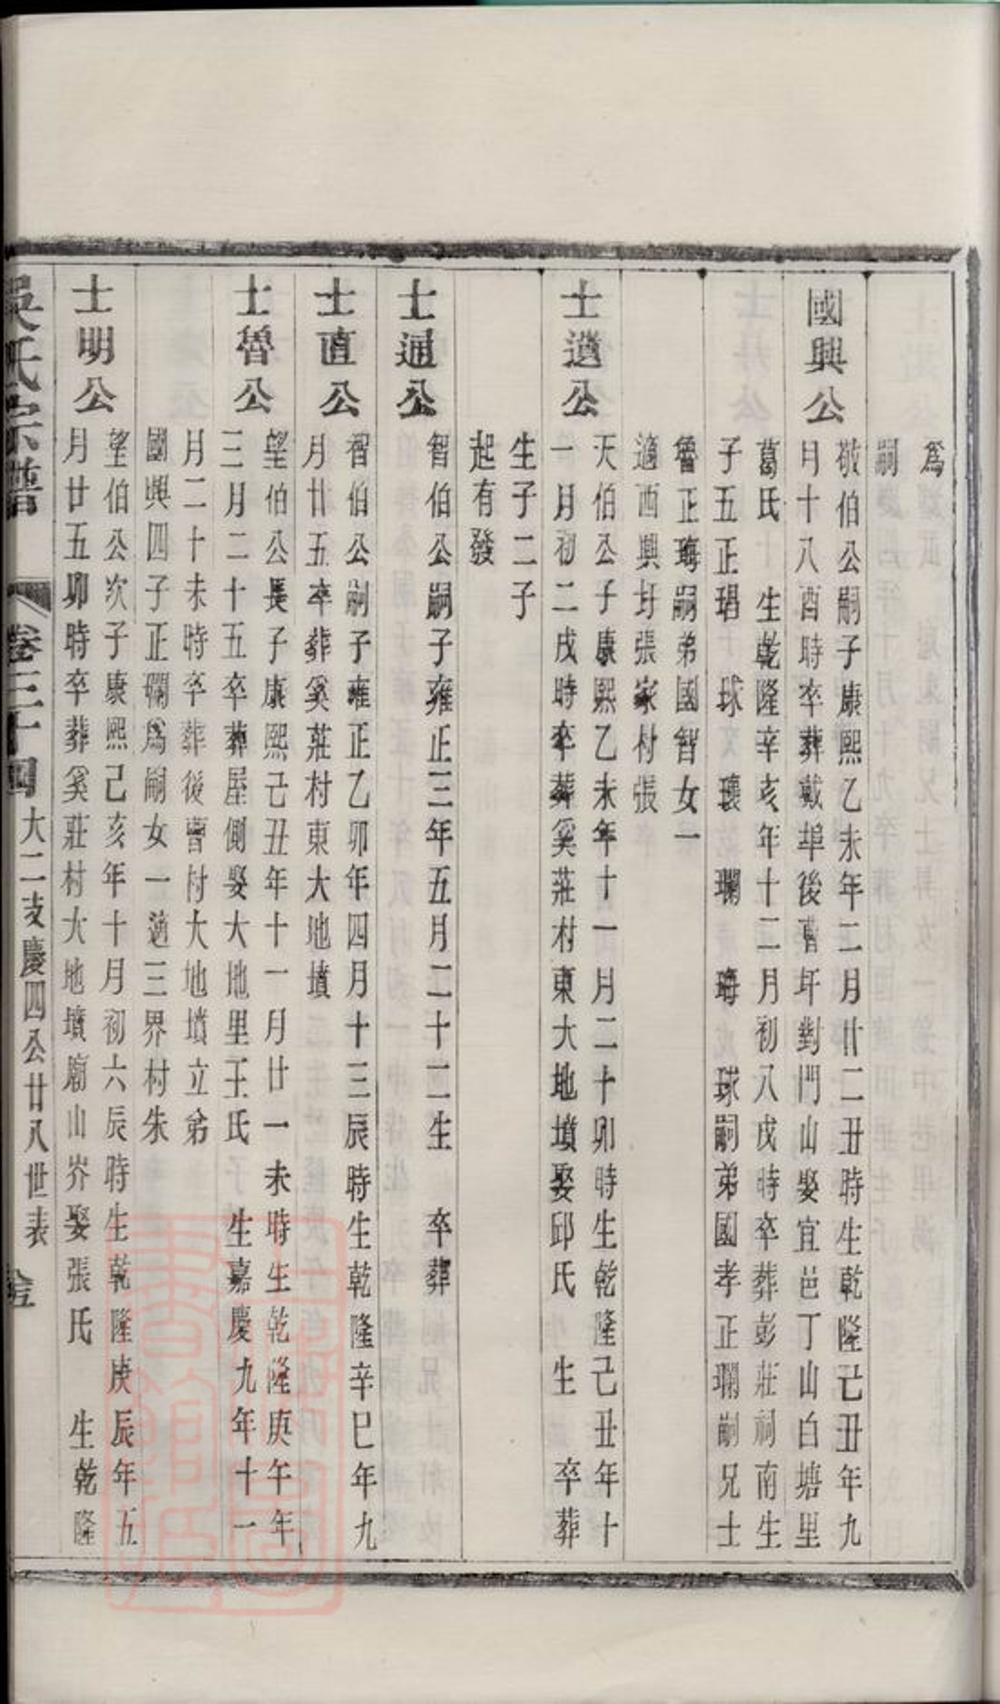 爲
嗣
國興公
敬伯公嗣子康熙乙未年二月廿二丑時生乾隆己丑年九
月十八酉時卒葬戴埠後曹圩對門山娶宜邑丁山白塘里
葛氏 生乾隆辛亥年十二月初八戌時卒葬彭莊祠南生
子五正琩 球 瓌 瓓 珻 球嗣弟國孝正瓓嗣兄士
魯正珻嗣弟國智女一
適西興圩張家村張
士邁公
天伯公子康熙乙未年十一月二十卯時生乾隆己丑年十
一月初二戌時卒葬奚莊村東大地墳娶邱氏 生 卒葬
生子二子
起有發
士通公
智伯公嗣子雍正三年五月二十二生 卒葬
士直公
智伯公嗣子雍正乙卯年四月十三辰時生乾隆辛巳年九
月廿五卒葬奚莊村東大地墳
士魯公
望伯公長子康熙己丑年十一月廿一未時生乾隆庚午年
三月二十五卒葬屋側娶大地里王氏 生嘉慶九年十一
月二十未時卒葬後曹村大地墳立弟
國興四子正瓓爲嗣女一適三界村朱
士明公
望伯公次子康熙己亥年十月初六辰時生乾隆庚辰年五
月廿五卯時卒葬奚莊村大地墳廟山岕娶張氏 生乾隆
吳氏宗譜 卷三十四 大二支慶四公廿八世表